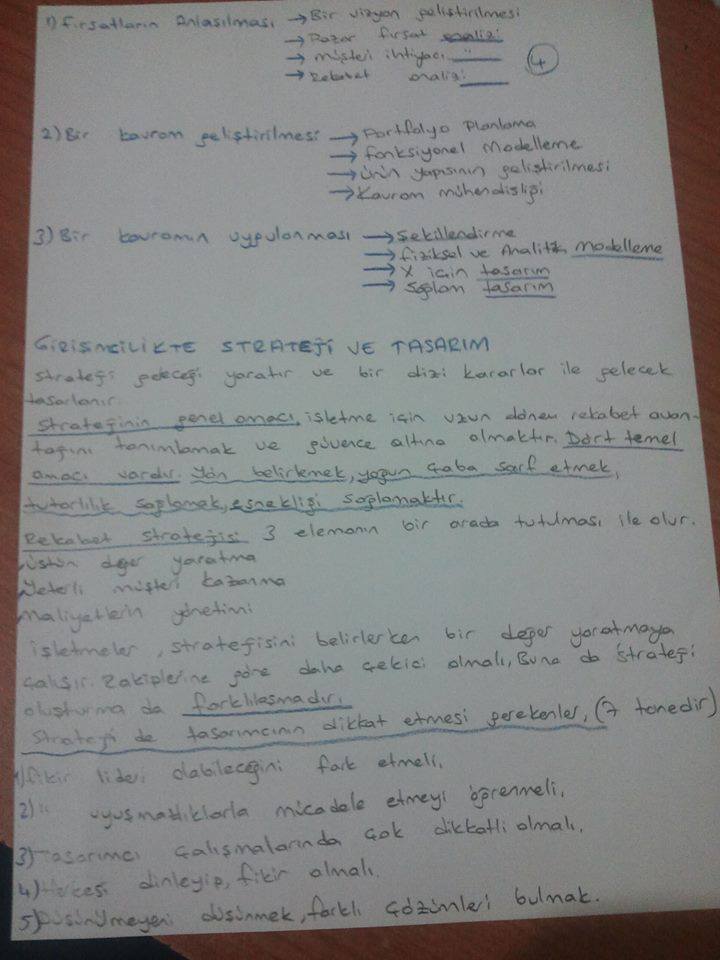 1) Fırsatların Anlaşılması → Bir vizyon geliştirilmesi
→ Pazar fırsat analizi
→ müşteri ihtiyacı "
→ Rekabet analizi
4
2) Bir kavram geliştirilmesi → Portfolyo Planlama
→ fonksiyonel Modelleme
→ ürün yapısının geliştirilmesi
→ Kavram mühendisliği
3) Bir kavramın uygulanması → Şekillendirme
→ fiziksel ve Analitik Modelleme
→ X için tasarım
→ Sağlam tasarım
GİRİŞİMCİLİKTE STRATEJİ VE TASARIM
strateji geleceği yaratır ve bir dizi kararlar ile gelecek
tasarlanır.
Stratejinin genel amacı, işletme için uzun dönem rekabet avan-
tajını tanımlamak ve güvence altına almaktır. Dört temel
amacı vardır. Yön belirlemek, yoğun çaba sarf etmek,
tutarlılık sağlamak, esnekliği sağlamaktır.
Rekabet stratejisi 3 elemanın bir arada tutulması ile olur.
Üstün değer yaratma
Yeterli müşteri kazanma
Maliyetlerin yönetimi
işletmeler, stratejisini belirlerken bir değer yaratmaya
çalışır. Rakiplerine göre daha çekici olmalı, Buna da strateji
oluşturma da farklılaşmadır.
Strateji de tasarımcının dikkat etmesi gerekenler, (7 tanedir)
1) fikir lideri olabileceğini fark etmeli,
2) uyuşmazlıklarla mücadele etmeyi öğrenmeli,
3) Tasarımcı çalışmalarında çok dikkatli olmalı,
4) Herkesi dinleyip, fikir almalı.
5) Düşünülmeyeni düşünmek, farklı çözümleri bulmak.